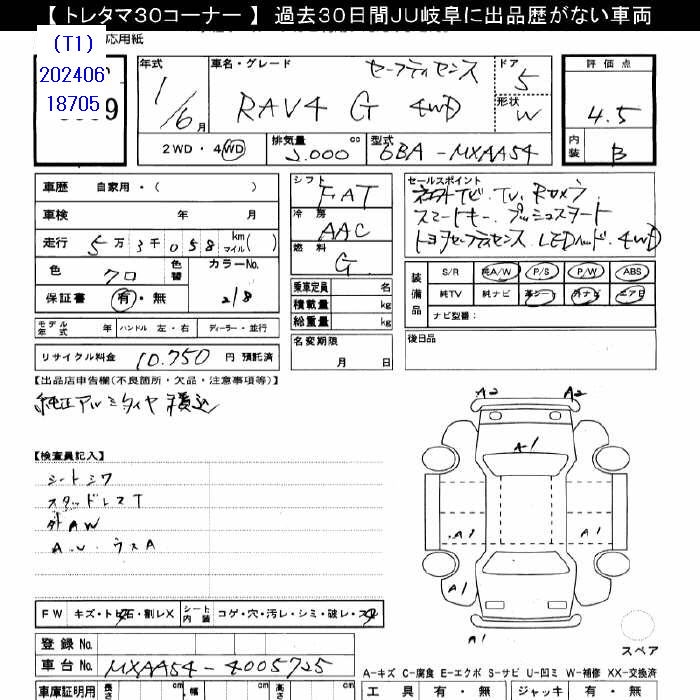 【トレタマ30コーナー】 過去30日間JU岐阜に出品歴がない車両
(T1)
202406
18705
応用紙
9
年式
1/6月
車名・グレード
セーフティセンス
RAV4 G 4WD
ドア
5
形状
W
評価点
4.5
内装
B
2WD・4WD
排気量
2.000
cc
型式
6BA-MXAA54
車歴 自家用・( )
車検 年 月
走行 5万3千058 km マイル ( )
色 クロ
色替
カラーNo.
218
保証書 有・無
モデル年式 年
ハンドル 左・右
ディーラー・並行
リサイクル料金 10.750 円 預託済
シフト
FAT
冷房
AAC
燃料
G
乗車定員 名
積載量 kg
総重量 kg
名変期限
月 日
セールスポイント
TV. Rカメラ
スマートキー. プッシュスタート
トヨタセーフティセンス LEDヘッド. 4WD
装備品
S/R 純A/W P/S P/W ABS
純TV 純ナビ 革シート 外ナビ エアB
ナビ型番:
後日品
【出品店申告欄(不良箇所・欠品・注意事項等)】
純正アルミタイヤ積込
【検査員記入】
シートシワ
スタッドレスT
外AW
A.U. ウスA
A2 A2
A1
A1 A1
A1
A1
スペア
FW キズ・トビ石・割レX
シート内装 コゲ・穴・汚レ・シミ・破レ・スレ
登録No.
車台No. MXAA54-4005725
車庫証明用 長さ cm 幅 cm 高さ cm
A-キズ C-腐食 E-エクボ S-サビ U-凹ミ W-補修 XX-交換済
工具 有・無 ジャッキ 有・無